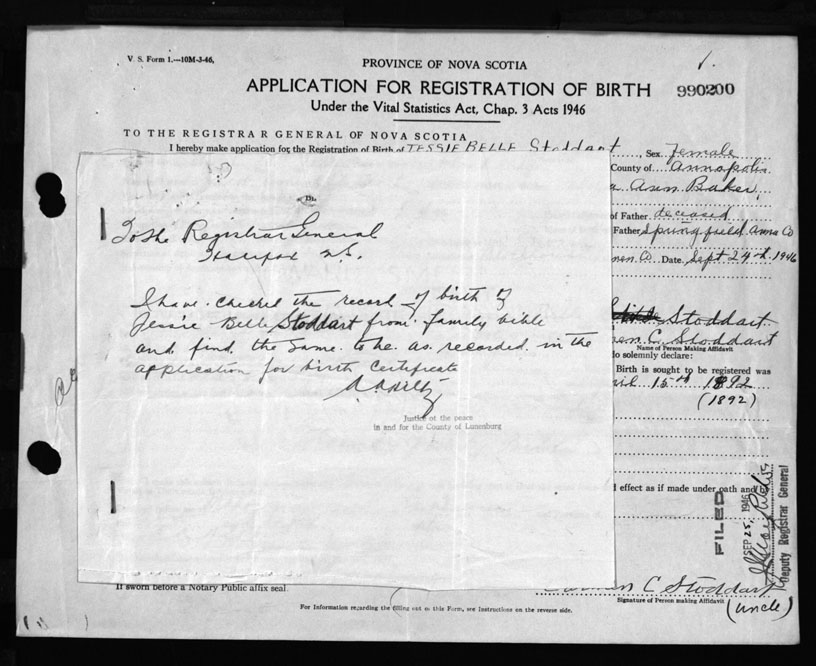 V. S. Form 1.—10M-3-46.
PROVINCE OF NOVA SCOTIA
APPLICATION FOR REGISTRATION OF BIRTH
990200
Under the Vital Statistics Act, Chap. 3 Acts 1946
TO THE REGISTRAR GENERAL OF NOVA SCOTIA
I hereby make application for the Registration of Birth of JESSIE BELLE Stoddart, Sex Female
County of Annapolis
Ann Baker
of Father deceased
Father Springfield Anna Co
Co. Date. Sept 24th 1946
To the Registrar General
Halifax N.S.
I have checked the record of birth of
Jessie Belle Stoddart from family bible
and find the same to be as recorded in the
application for birth certificate
Justice of the peace
in and for the County of Lunenburg
Stoddart
C. Stoddart
Name of Person Making Affidavit
do solemnly declare:
Birth is sought to be registered was
15th 1892
(1892)
effect as if made under oath and
FILED
SEP 25, 1946
Deputy Registrar General
If sworn before a Notary Public affix seal.
C Stoddart
Signature of Person making Affidavit
(uncle)
For Information regarding the filling out of this Form, see Instructions on the reverse side.